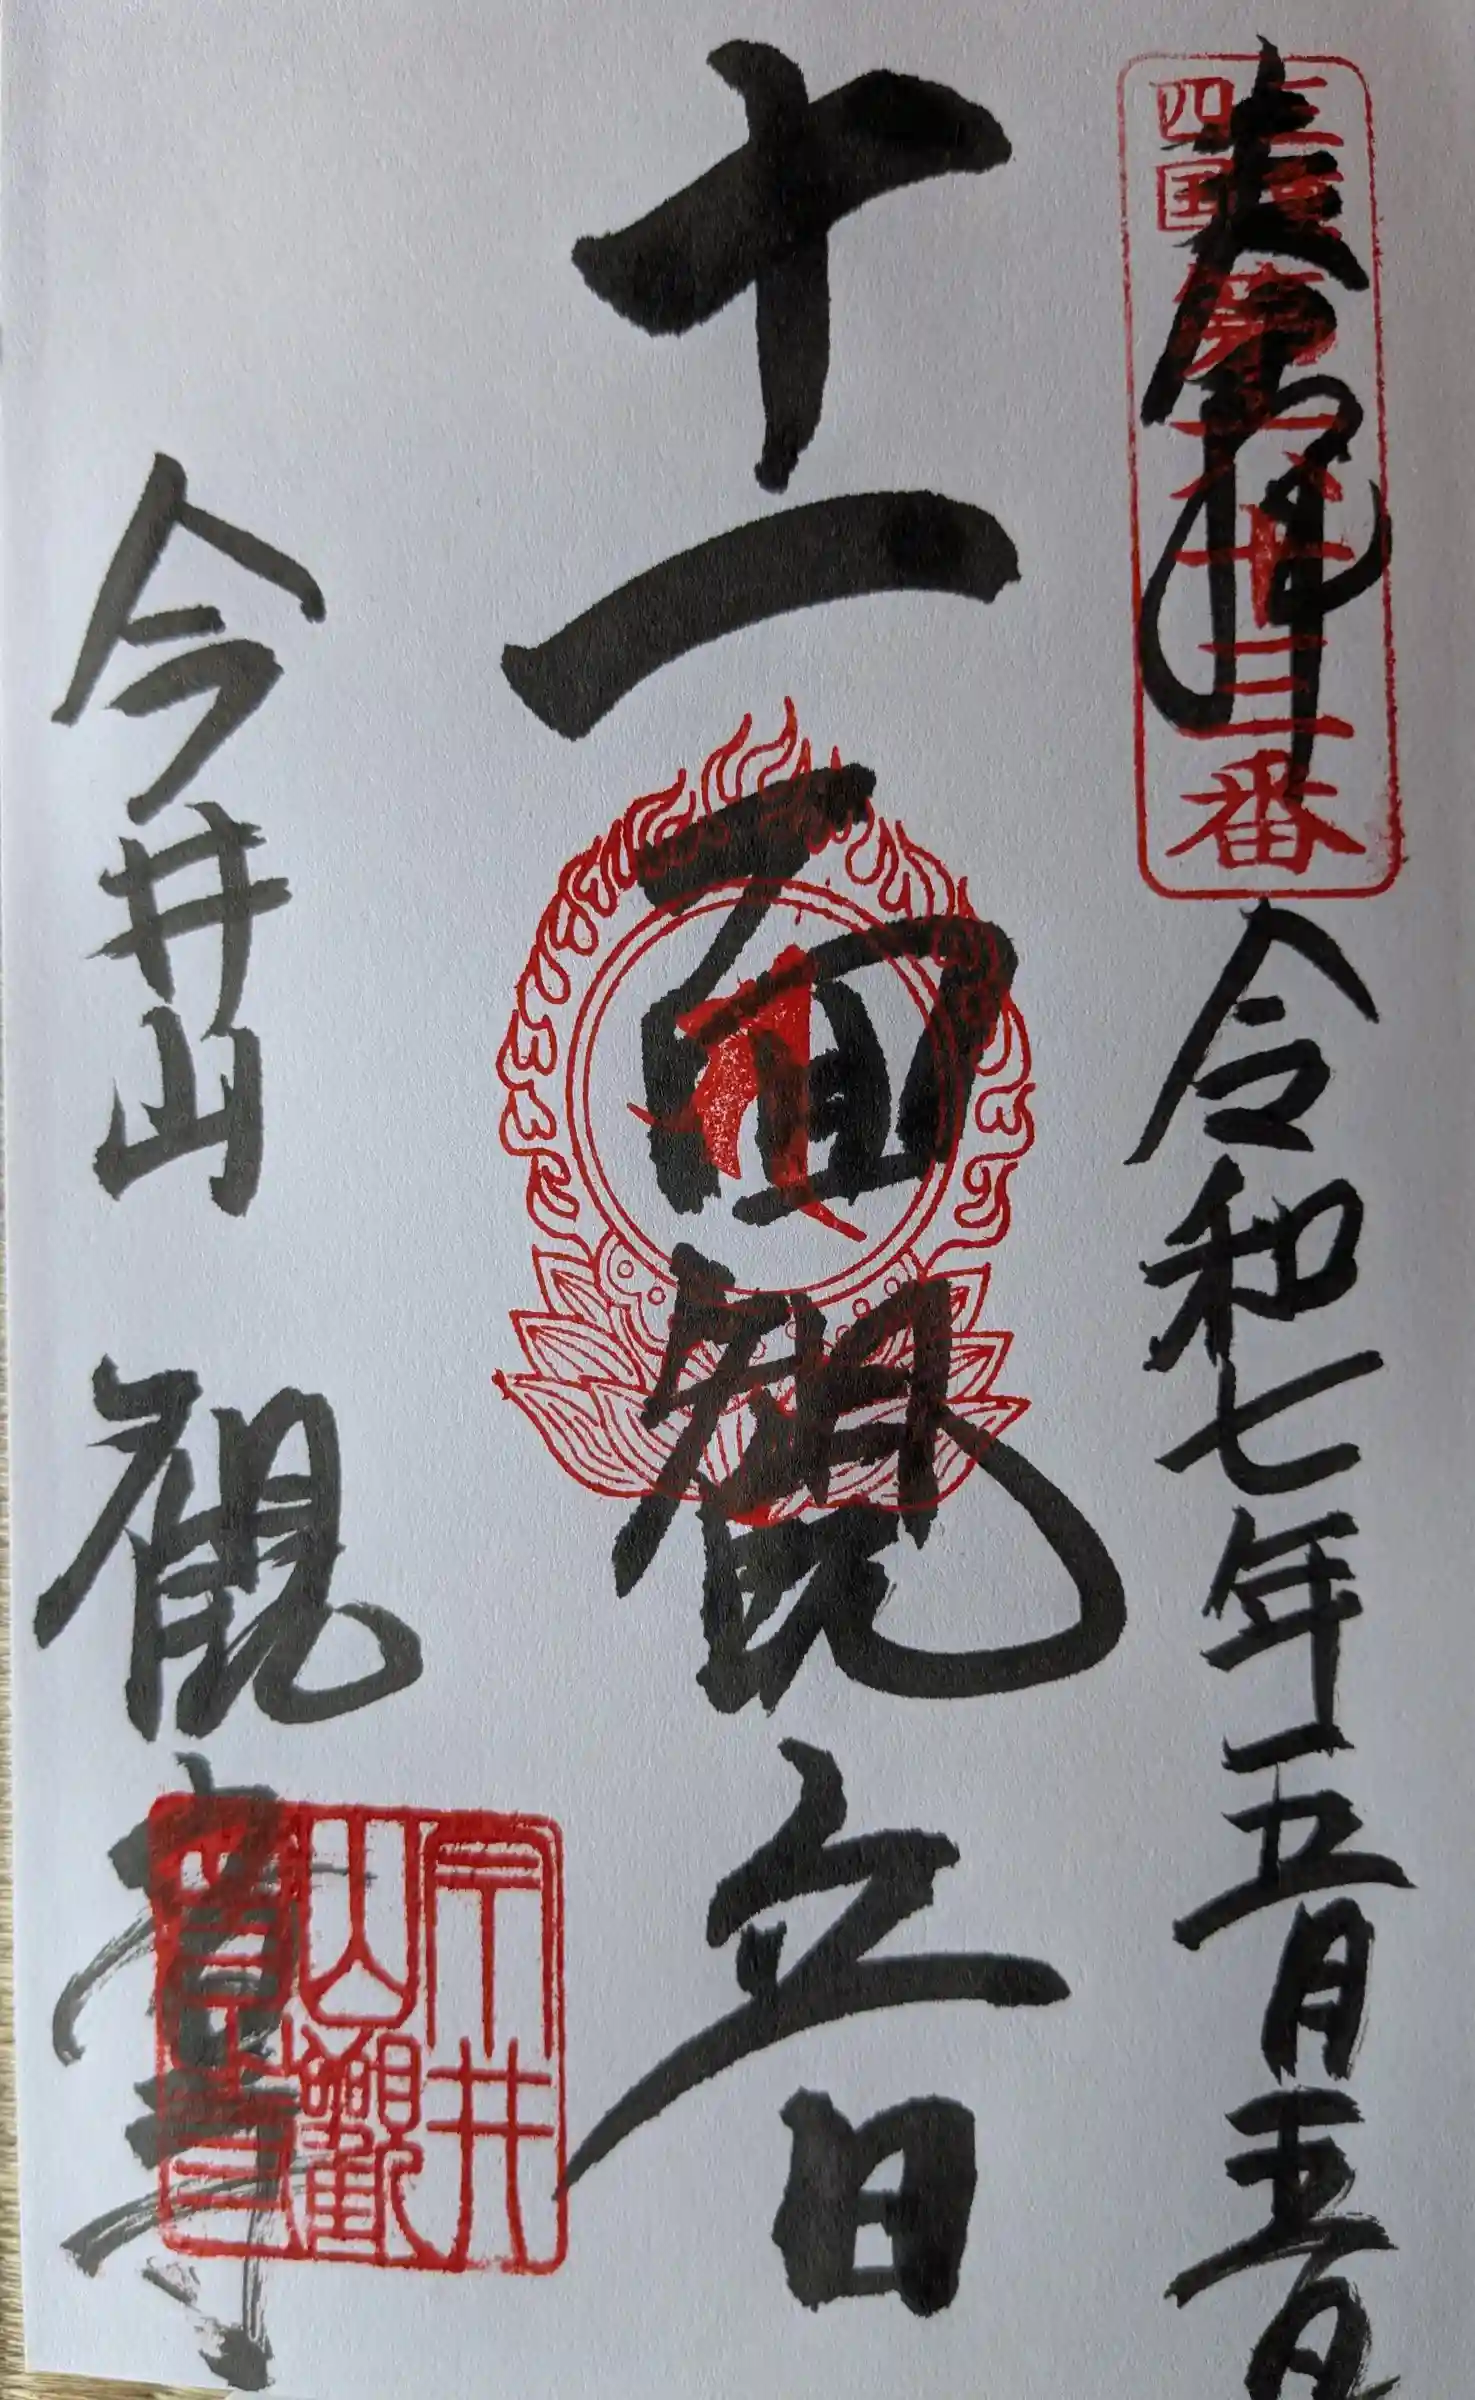 奉拝
三重四国第六十三番
令和七年五月五日
十一面観音
今井山 観音寺
今井
山観
音寺